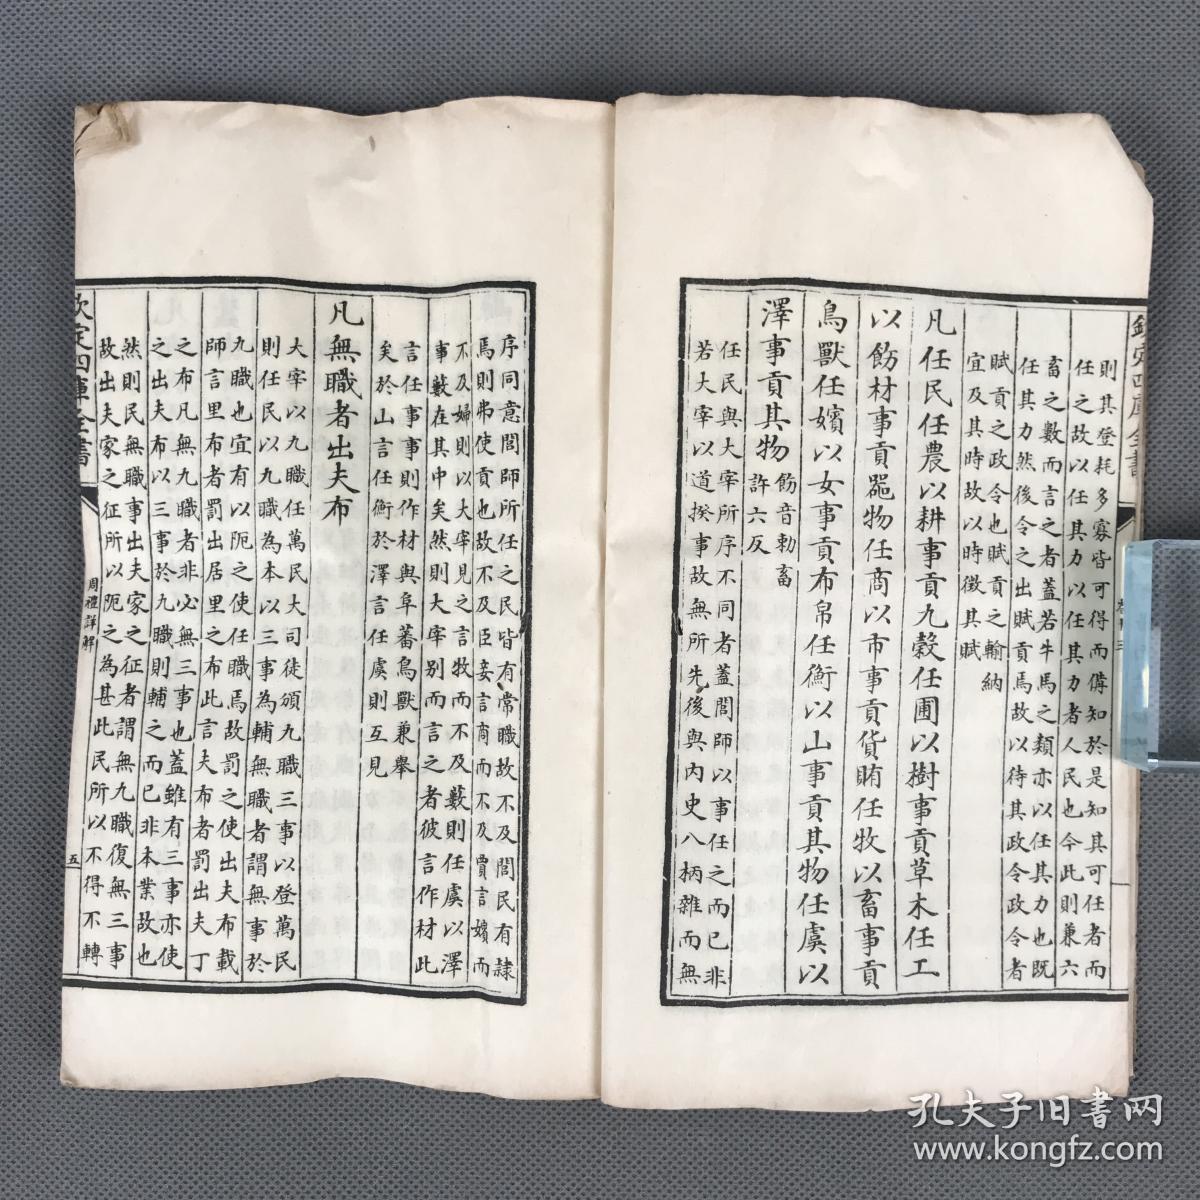 欽定四庫全書
則其登耗多寡皆可得而備知於是知其可任者而
任之故以任其力以任其力者人民也今此則兼六
畜之數而言之者蓋若牛馬之類亦以任其力也既
任其力然後令之出賦貢焉故以待其政令政令者
賦貢之政令也賦貢之輸納
宜及其時故以時徵其賦
凡任民任農以耕事貢九穀任圃以樹事貢草木任工
以飭材事貢噐物任商以市事貢貨賄任牧以畜事貢
鳥獸任嬪以女事貢布帛任衡以山事貢其物任虞以
澤事貢其物
飭音勅畜
許六反
任民與大宰所序不同者蓋閭師以事任之而已非
若大宰以道揆事故無所先後與内史八柄雜而無
序同意閭師所任之民皆有常職故不及閒民有隷
焉則弗使貢也故不及臣妾言商而不及賈言嬪而
不及婦則以大宰見之言牧而不及藪則任虞以澤
事數在其中矣然則大宰别而言之者彼言作材此
言任事事則作材與阜蕃鳥獸兼舉
矣於山言任衡於澤言任虞則互見
凡無職者出夫布
大宰以九職任萬民大司徒頒九職三事以登萬民
則任民以九職為本以三事為輔無職者謂無事於
九職也宜有以阨之使任職焉故罰之使出夫布載
師言里布者罰出居里之布此言夫布者罰出夫丁
之布凡無九職者非必無三事也蓋雖有三事亦使
之出夫布以三事於九職則輔之而已非本業故也
然則民無職事出夫家之征者謂無九職復無三事
故出夫家之征所以阨之為甚此民所以不得不轉
欽定四庫全書
周禮詳解
五
孔夫子旧书网
www.kongfz.com